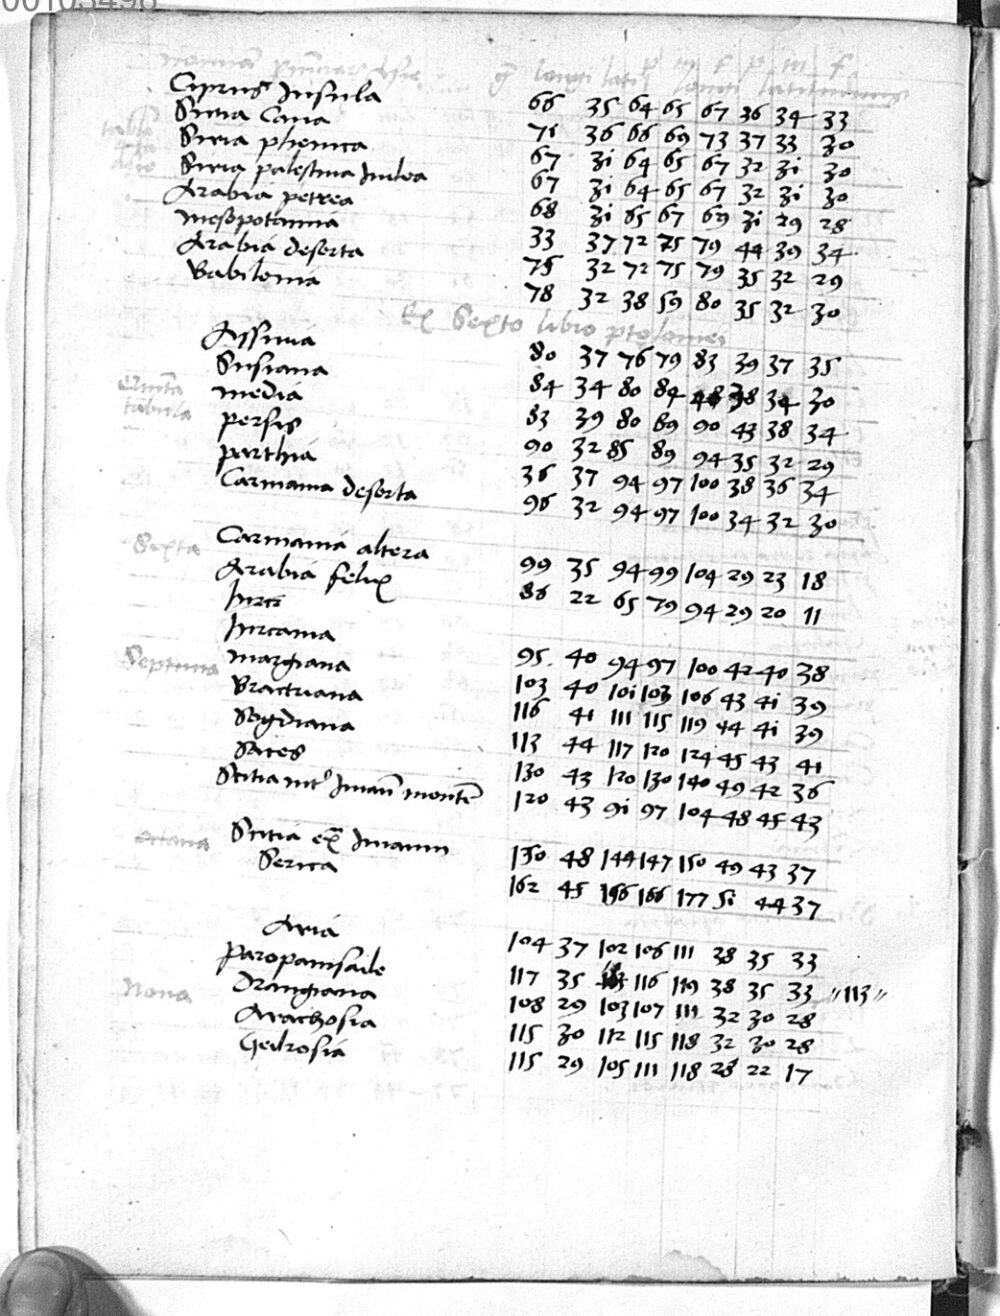 00103498
longi lati p m f p m f
Ciprus Insula 66 35 64 65 67 36 34 33
Siria Cava 71 36 66 69 73 37 33 30
Siria phenica 67 31 64 65 67 32 31 30
Siria palestina Iudea 67 31 64 65 67 32 31 30
Arabia petrea 68 31 65 67 69 31 29 28
mesopotamia 33 37 72 75 79 44 39 34
Arabia deserta 75 32 72 75 79 35 32 29
Babilonia 78 32 38 59 80 35 32 30
Ex Sexto libro ptolomei
Assiria 80 37 76 79 83 39 37 35
Susiana 84 34 80 84 38 34 30
Quinta tabula
media 83 39 80 89 90 43 38 34
persis 90 32 85 89 94 35 32 29
parthia 36 37 94 97 100 38 36 34
Carmania deserta 96 32 94 97 100 34 32 30
Sexta
Carmania altera 99 35 94 99 104 29 23 18
Arabia felix 86 22 65 79 94 29 20 11
hircania 95 40 94 97 100 42 40 38
Septima
margiana 103 40 101 103 106 43 41 39
Bractriana 116 41 111 115 119 44 41 39
Sogdiana 113 44 117 120 124 45 43 41
Saces 130 43 120 130 140 49 42 36
Scitia int Imaū montē 120 43 91 97 104 48 45 43
octava
Scitia ex Imaum 150 48 144 147 150 49 43 37
Serica 162 45 156 166 177 51 44 37
Aria 104 37 102 106 111 38 35 33
paropanisade 117 35 116 119 38 35 33 "113"
Nona
Drangiana 108 29 103 107 111 32 30 28
Arachosia 115 30 112 115 118 32 30 28
Gedrosia 115 29 105 111 118 28 22 17